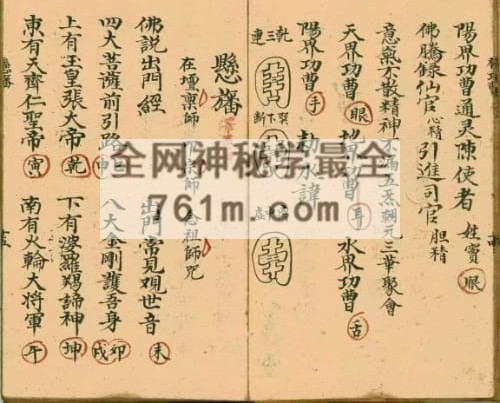 陽界功曹通灵陳使者 姓竇 眼
佛騰錄仙官 心精 引進司官 胆精
意氣不散精神不漏五炁朝元三華聚會
天界功曹 眼 地 功曹 耳 水界功曹 舌
陽界功曹 手 勅水諱
乾三連
巽下断
懸旛
在壇稟師 祖師咒
佛說出門經 出門常見观世音 未
四大菩薩前引路 申 八大金剛護吾身 卯 戌
上有玉皇張大帝 乾 下有婆羅羯諦神 坤
東有天齊仁聖帝 寅 南有火輪大將軍 午
全网神秘学最全
761m.com